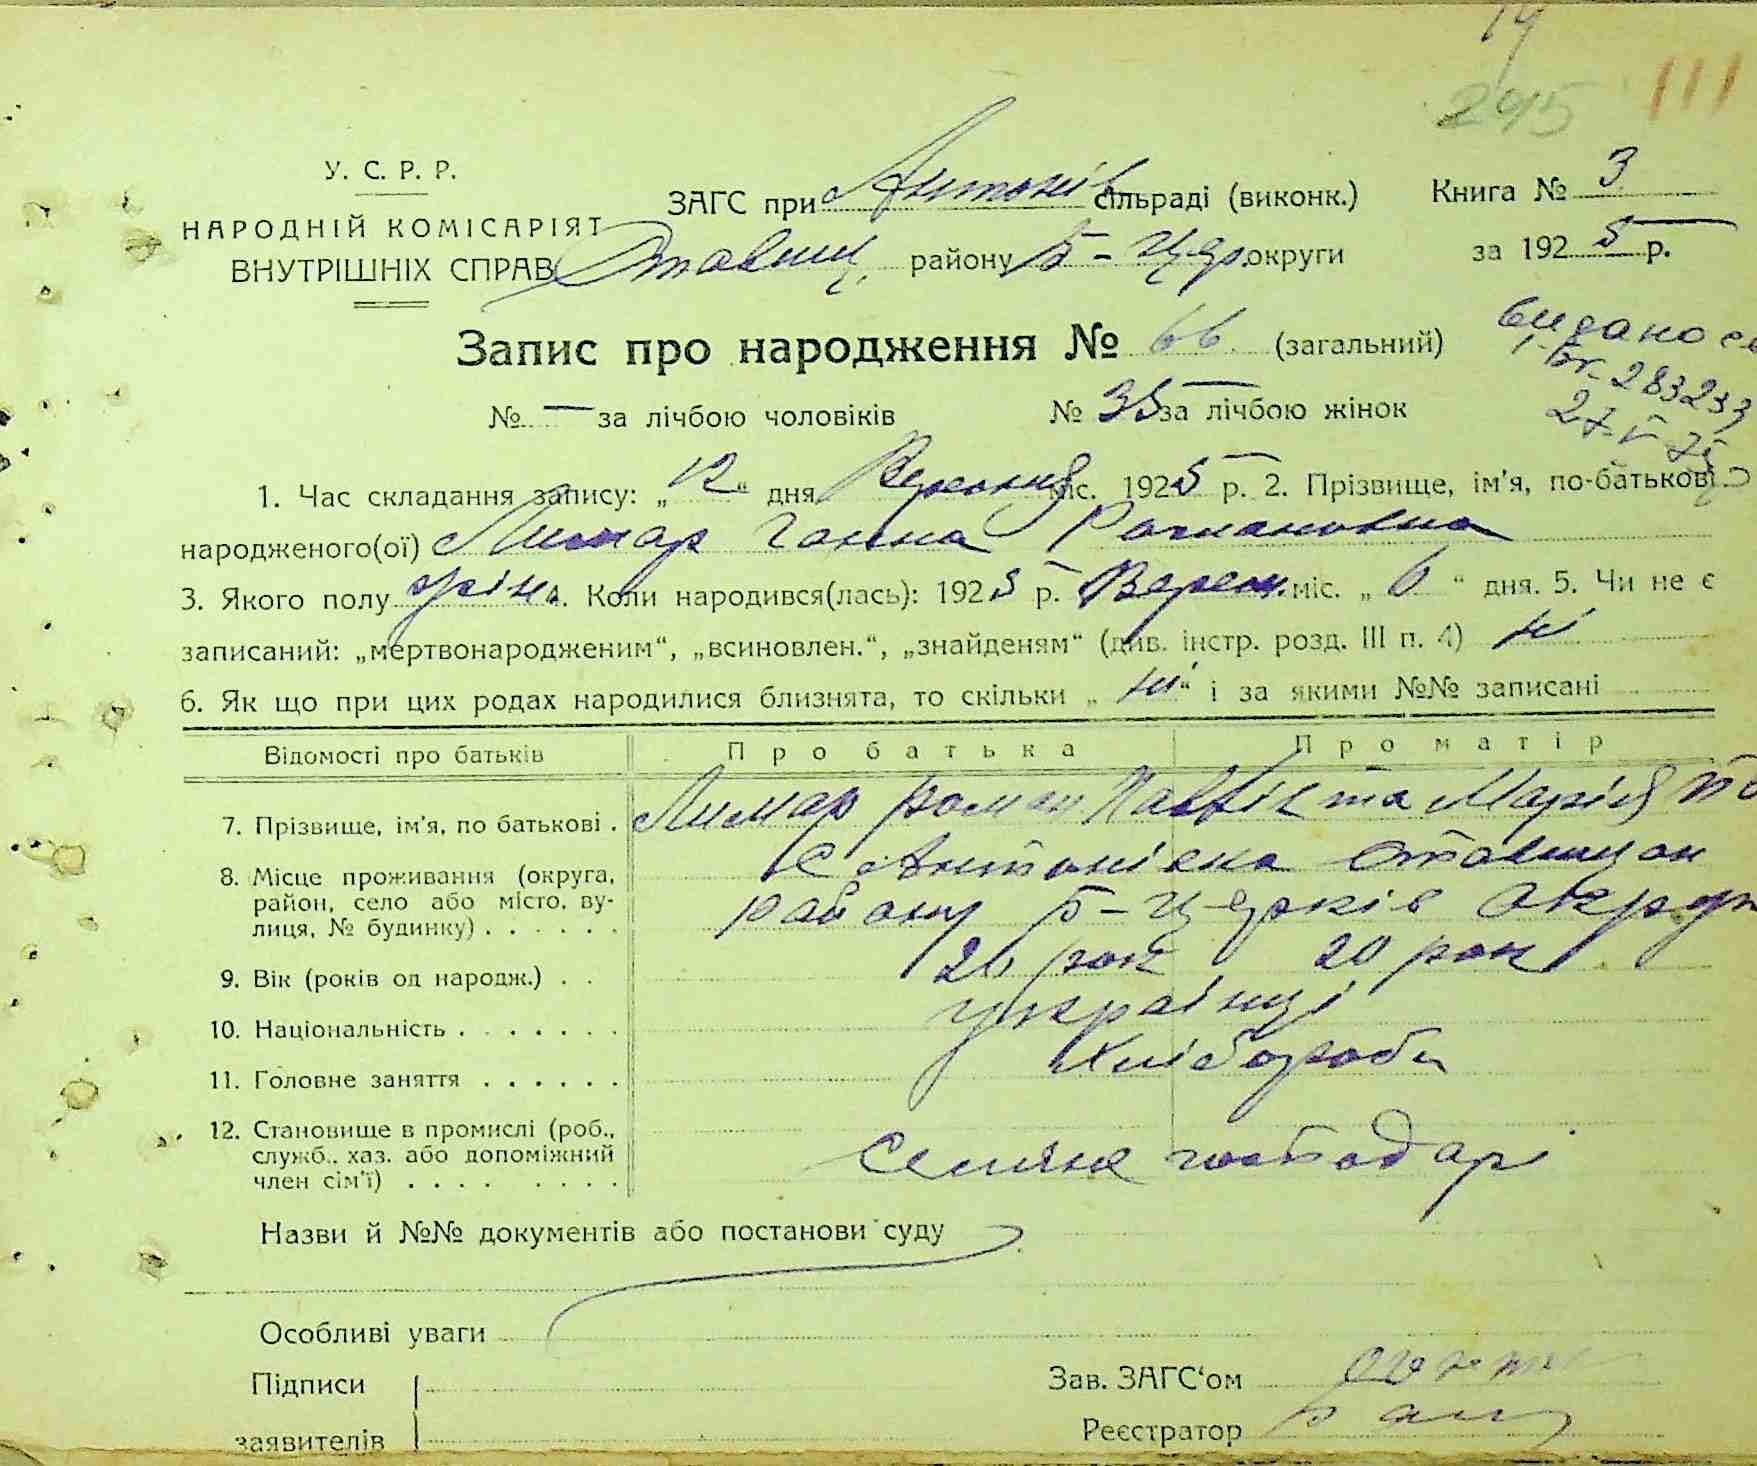 14
245 111
У. С. Р. Р.
НАРОДНІЙ КОМІСАРІЯТ
ВНУТРІШНІХ СПРАВ
ЗАГС при Антонів сільраді (виконк.) Книга № 3
Ставищ. району Б-Церк. округи за 1925 р.
Запис про народження № 66 (загальний)
видано св
283233
27-V-75
№ — за лічбою чоловіків № 35 за лічбою жінок
1. Час складання запису: „12“ дня Вересня міс. 1925 р. 2. Прізвище, ім'я, по-батькові
народженого(ої) Лимар Ганна Романовна
3. Якого полу жіно. Коли народився(лась): 1925 р. Верес. міс. „6“ дня. 5. Чи не є
записаний: „мертвонародженим“, „всиновлен.“, „знайденям“ (див. інстр. розд. III п. 4) ні
6. Як що при цих родах народилися близнята, то скільки „ні“ і за якими №№ записані
Відомості про батьків Про батька Про матір
7. Прізвище, ім'я, по батькові . Лимар Роман Павлів та Марія
8. Місце проживання (округа, район, село або місто, вулиця, № будинку) . . . . . . с Антонівка Ставищан
району Б-Церків округи
9. Вік (років од народж.) . . 26 рок 20 рок
10. Національність . . . . . . . українці
11. Головне заняття . . . . . . Хлібороби
12. Становище в промислі (роб., служб., хаз. або допоміжний член сім'ї) . . . . . . . . . Селяне господарі
Назви й №№ документів або постанови суду
Особливі уваги
Підписи Зав. ЗАГС'ом
заявителів Реєстратор